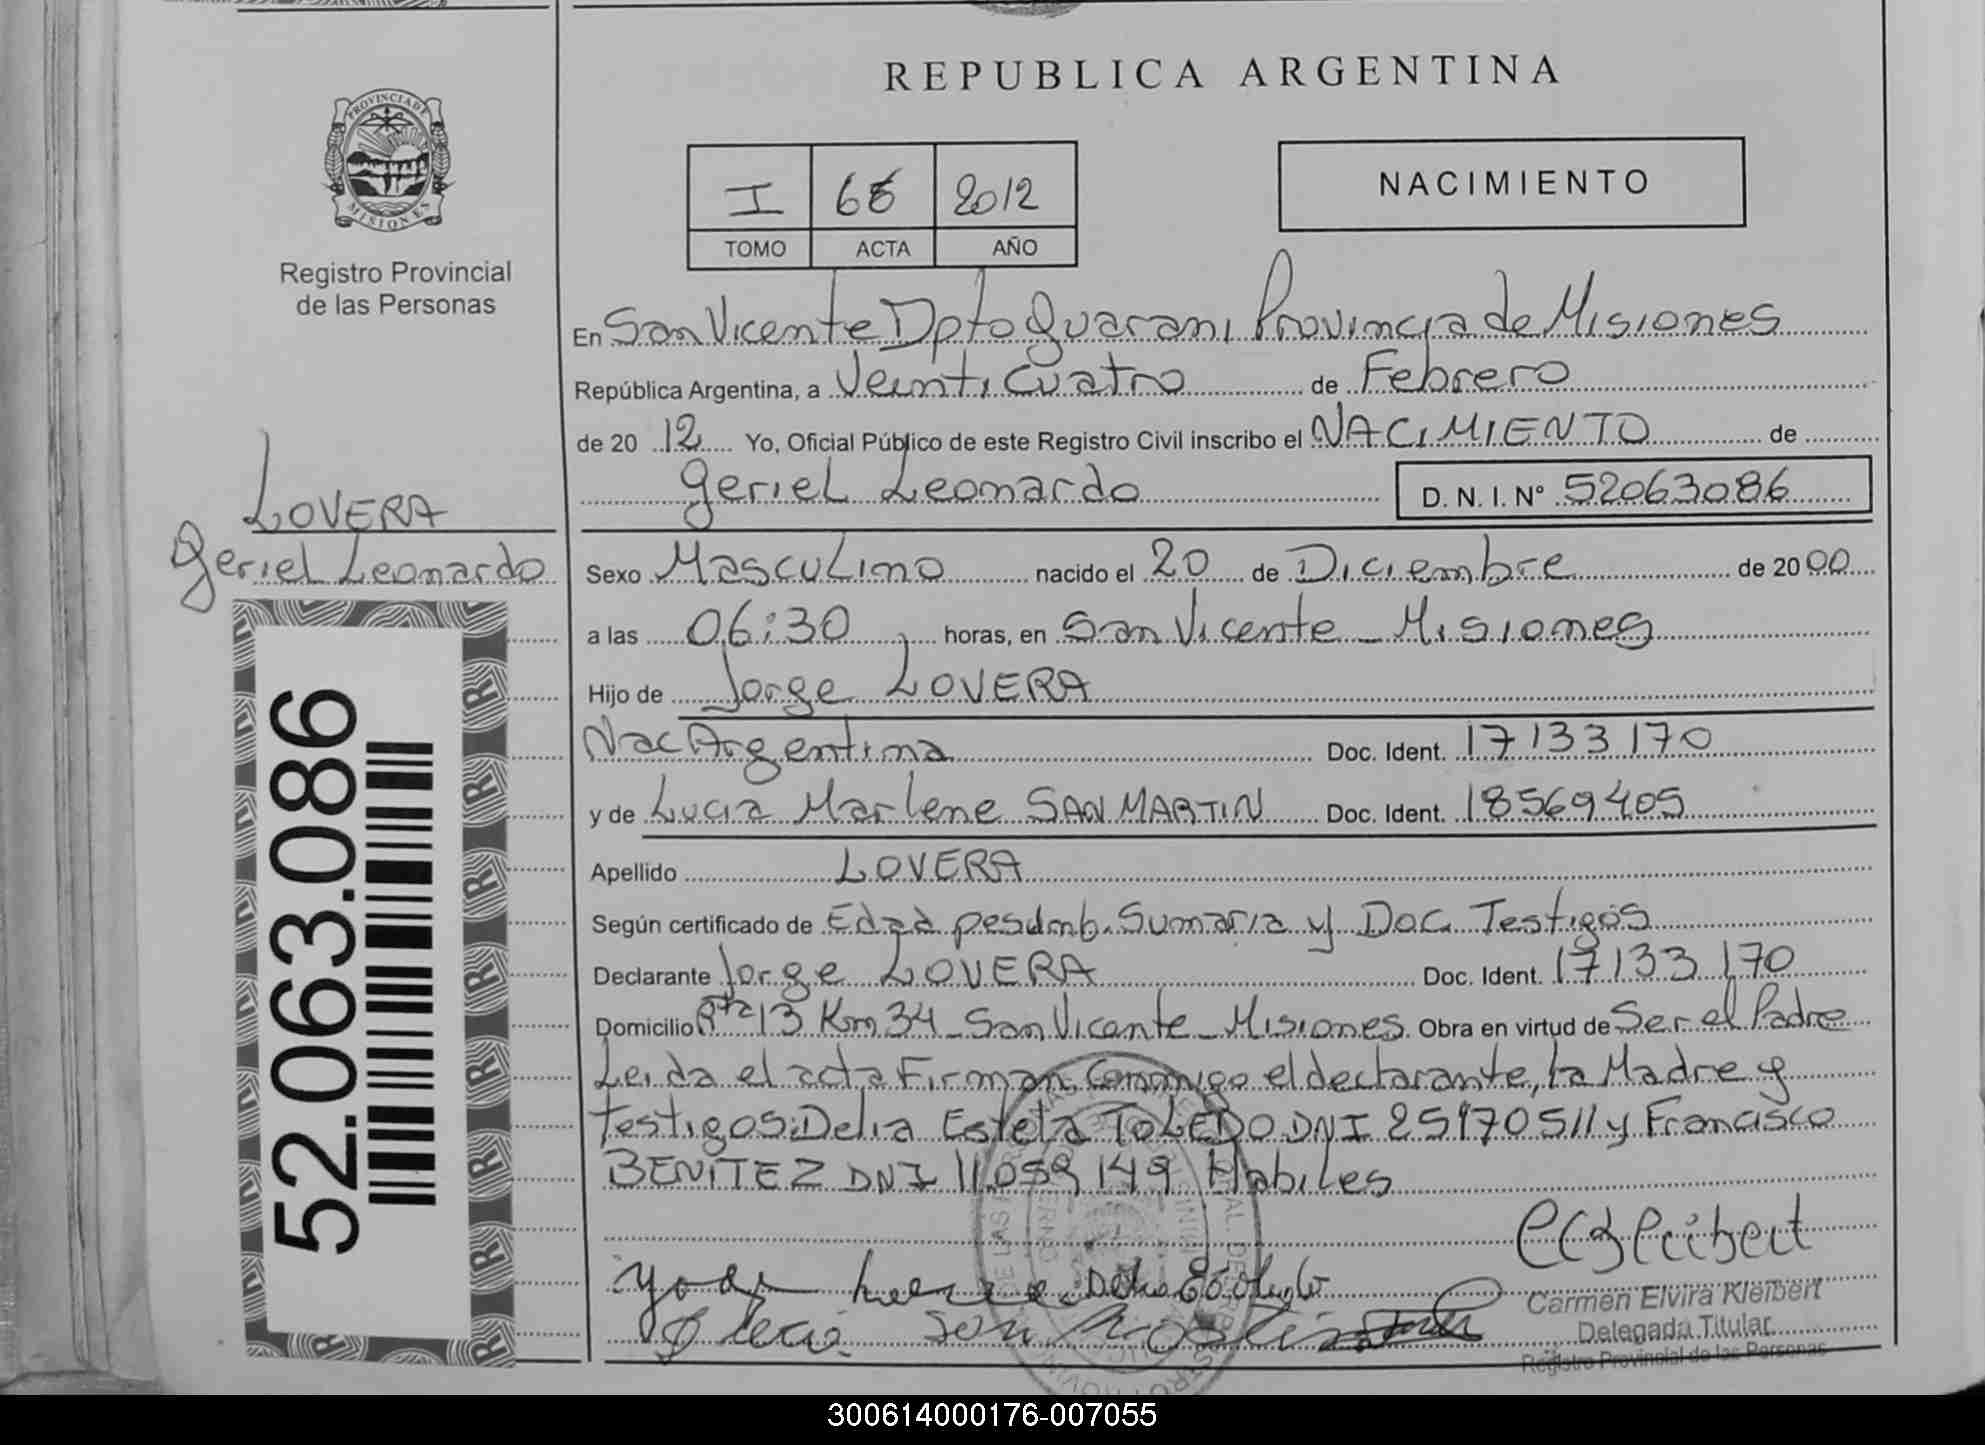 REPUBLICA ARGENTINA
PROVINCIA DE
MISIONES
Registro Provincial
de las Personas
I 2012
TOMO ACTA AÑO
NACIMIENTO
En San Vicente Dpto Guarani Provincia de Misiones
República Argentina, a Veinti Cuatro de Febrero
de 20 12 Yo, Oficial Público de este Registro Civil inscribo el NACIMIENTO de
Geriel Leonardo D. N. I. N° 52063086
LOVERA
Geriel Leonardo
Sexo Masculino nacido el 20 de Diciembre de 20 00
a las 06:30 horas, en San Vicente - Misiones
Hijo de Jorge LOVERA
Nac Argentina Doc. Ident. 17133170
y de Lucia Marlene SAN MARTIN Doc. Ident. 18569405
Apellido LOVERA
Según certificado de Edad Sumaria y Doc. Testigos
Declarante Jorge LOVERA Doc. Ident. 17133170
Domicilio Rta 13 Km 34 - San Vicente - Misiones Obra en virtud de Ser el Padre
Leida el acta Firman Conmigo el declarante, la Madre y
testigos: Delia Estela TOLEDO DNI 25170511 y Francisco
BENITEZ DNI 11.059.149 Habiles
52.063.086
Carmen Elvira Kleibert
Delegada Titular
Registro Provincial de las Personas
300614000176-007055